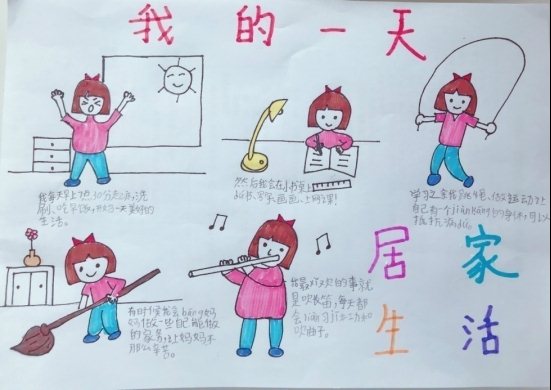 我的一天
我每天早上7点10分起床,洗
刷、吃早饭,开始一天美好的
生活。
然后我会在小书桌上
读书、写字、画画、上网课!
学习之余我跳绳、做运动让
自己有个jiàn kāng的身体,可以
抵抗病dú。
有时候我会bāng妈
妈做一些自己能做
的家务,让妈妈不
那么辛苦。
我最喜欢的事就
是吹长笛,每天都
会liàn习jī本功和
吹曲子。
居家
生活